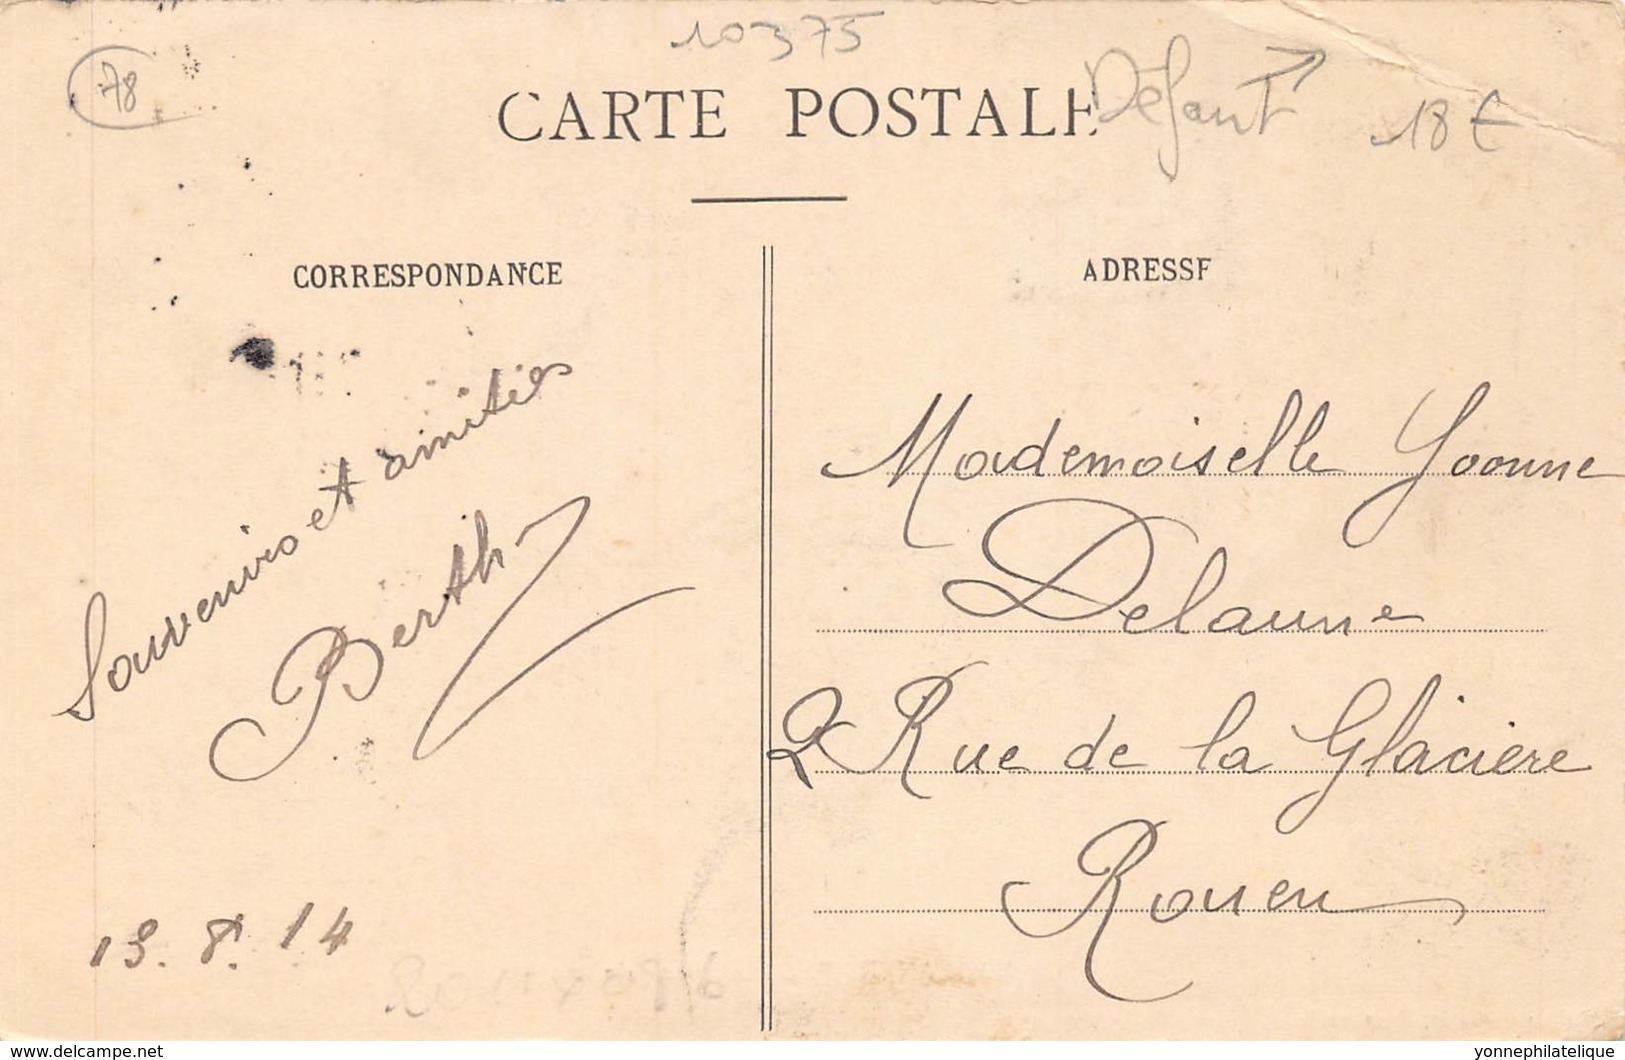 10375
78
Défaut
18€
CARTE POSTALE
CORRESPONDANCE
ADRESSE
Souvenirs et amitiés
Berth
Mademoiselle Yvonne
Delaune
2 Rue de la Glaciere
Rouen
13.8.14
www.delcampe.net
yonnephilatelique